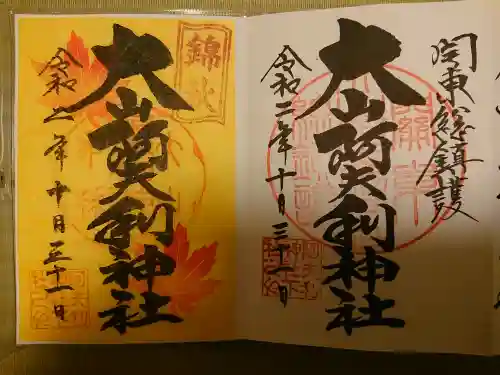 関東総鎮護
大山阿夫利神社
令和二年十月三十一日
錦秋
大山阿夫利神社
令和二年十月三十一日